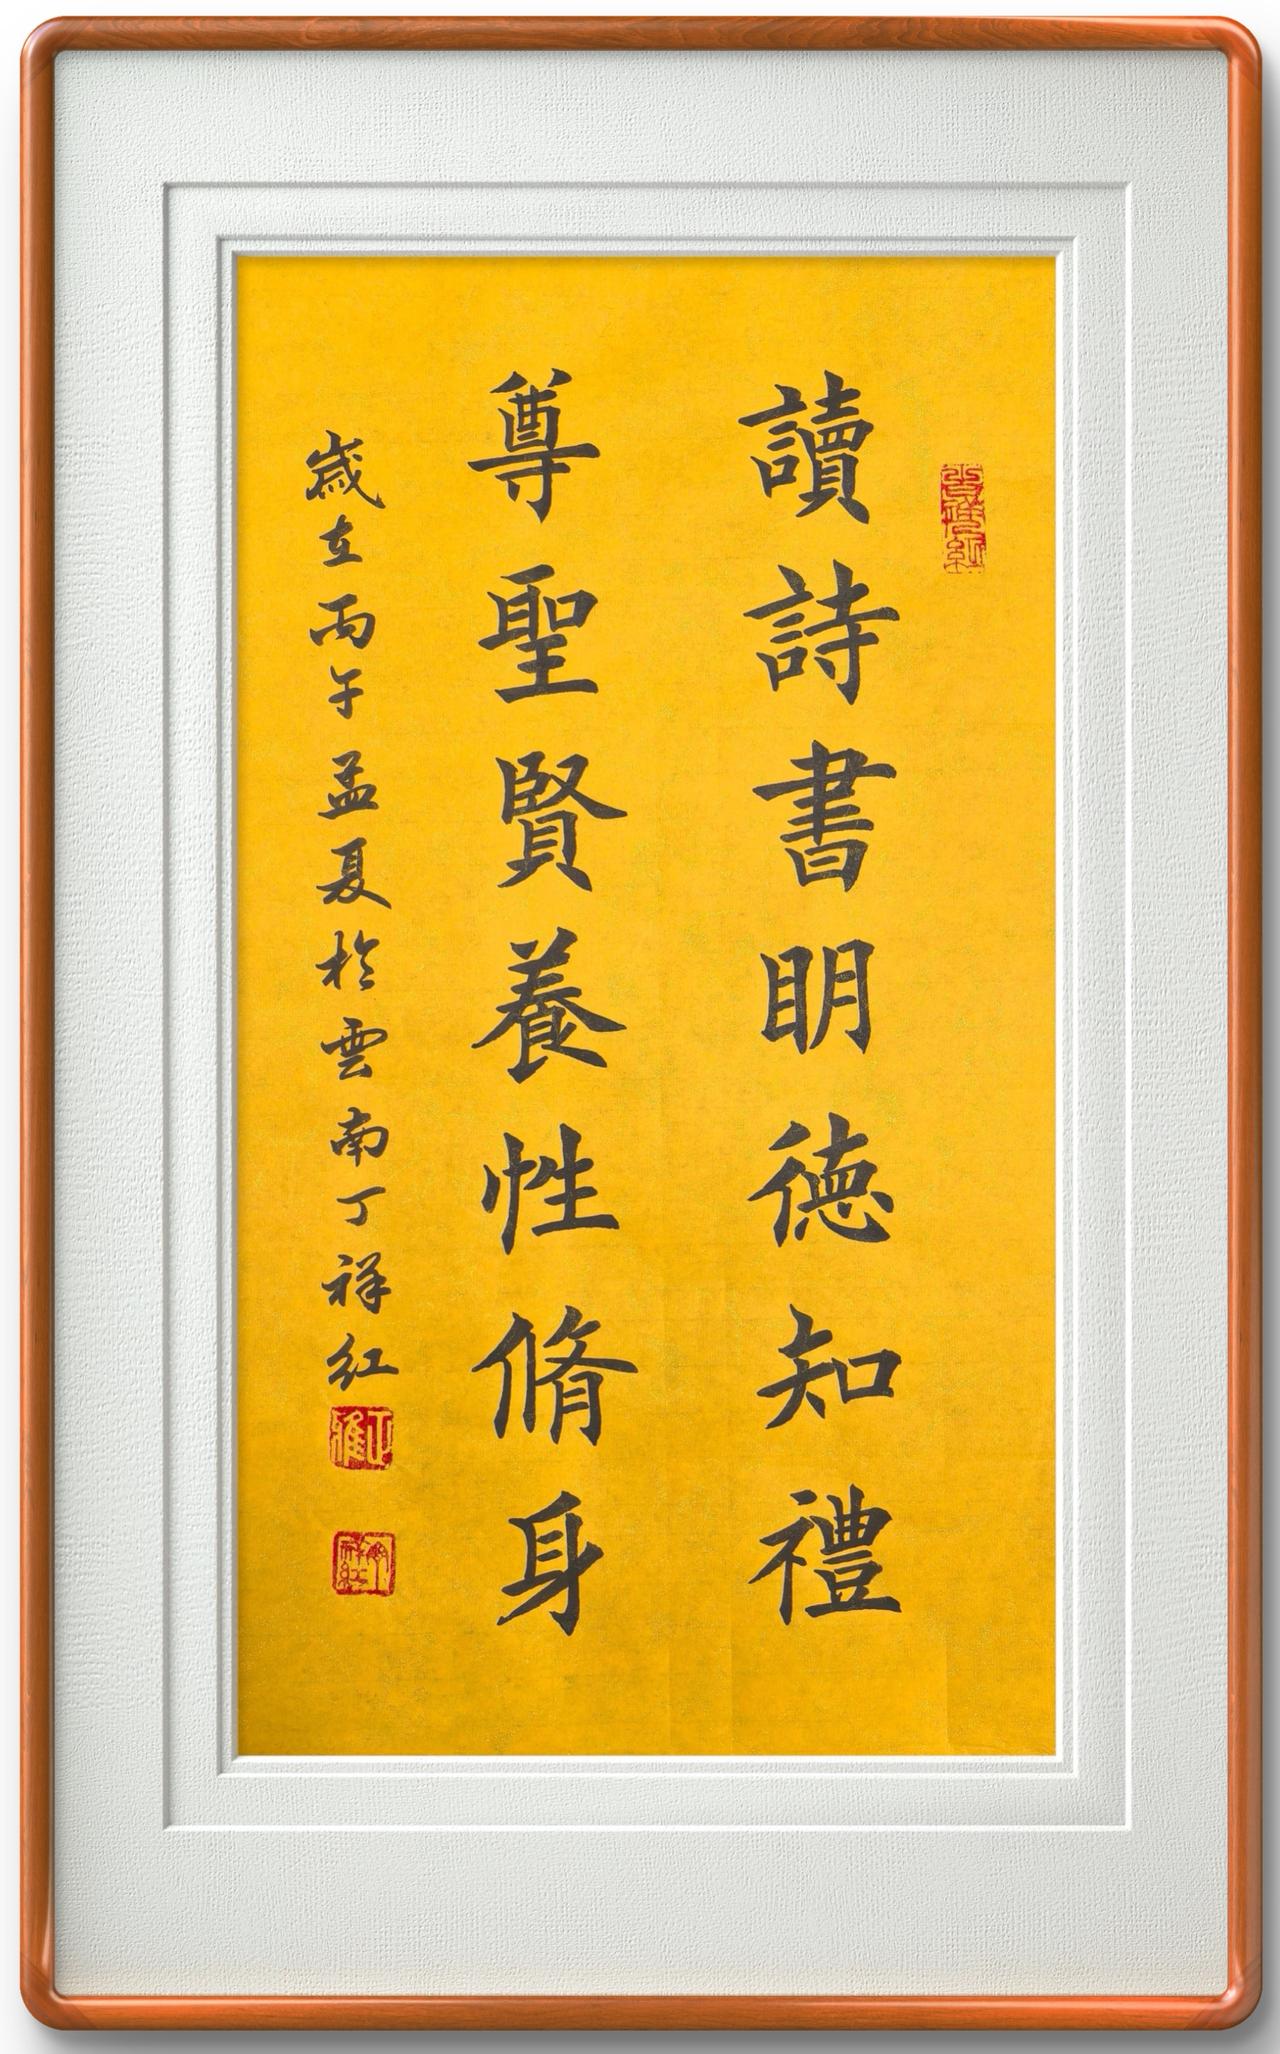 讀詩書明德知禮
尊聖賢養性脩身
歲在丙午孟夏於雲南丁祥紅